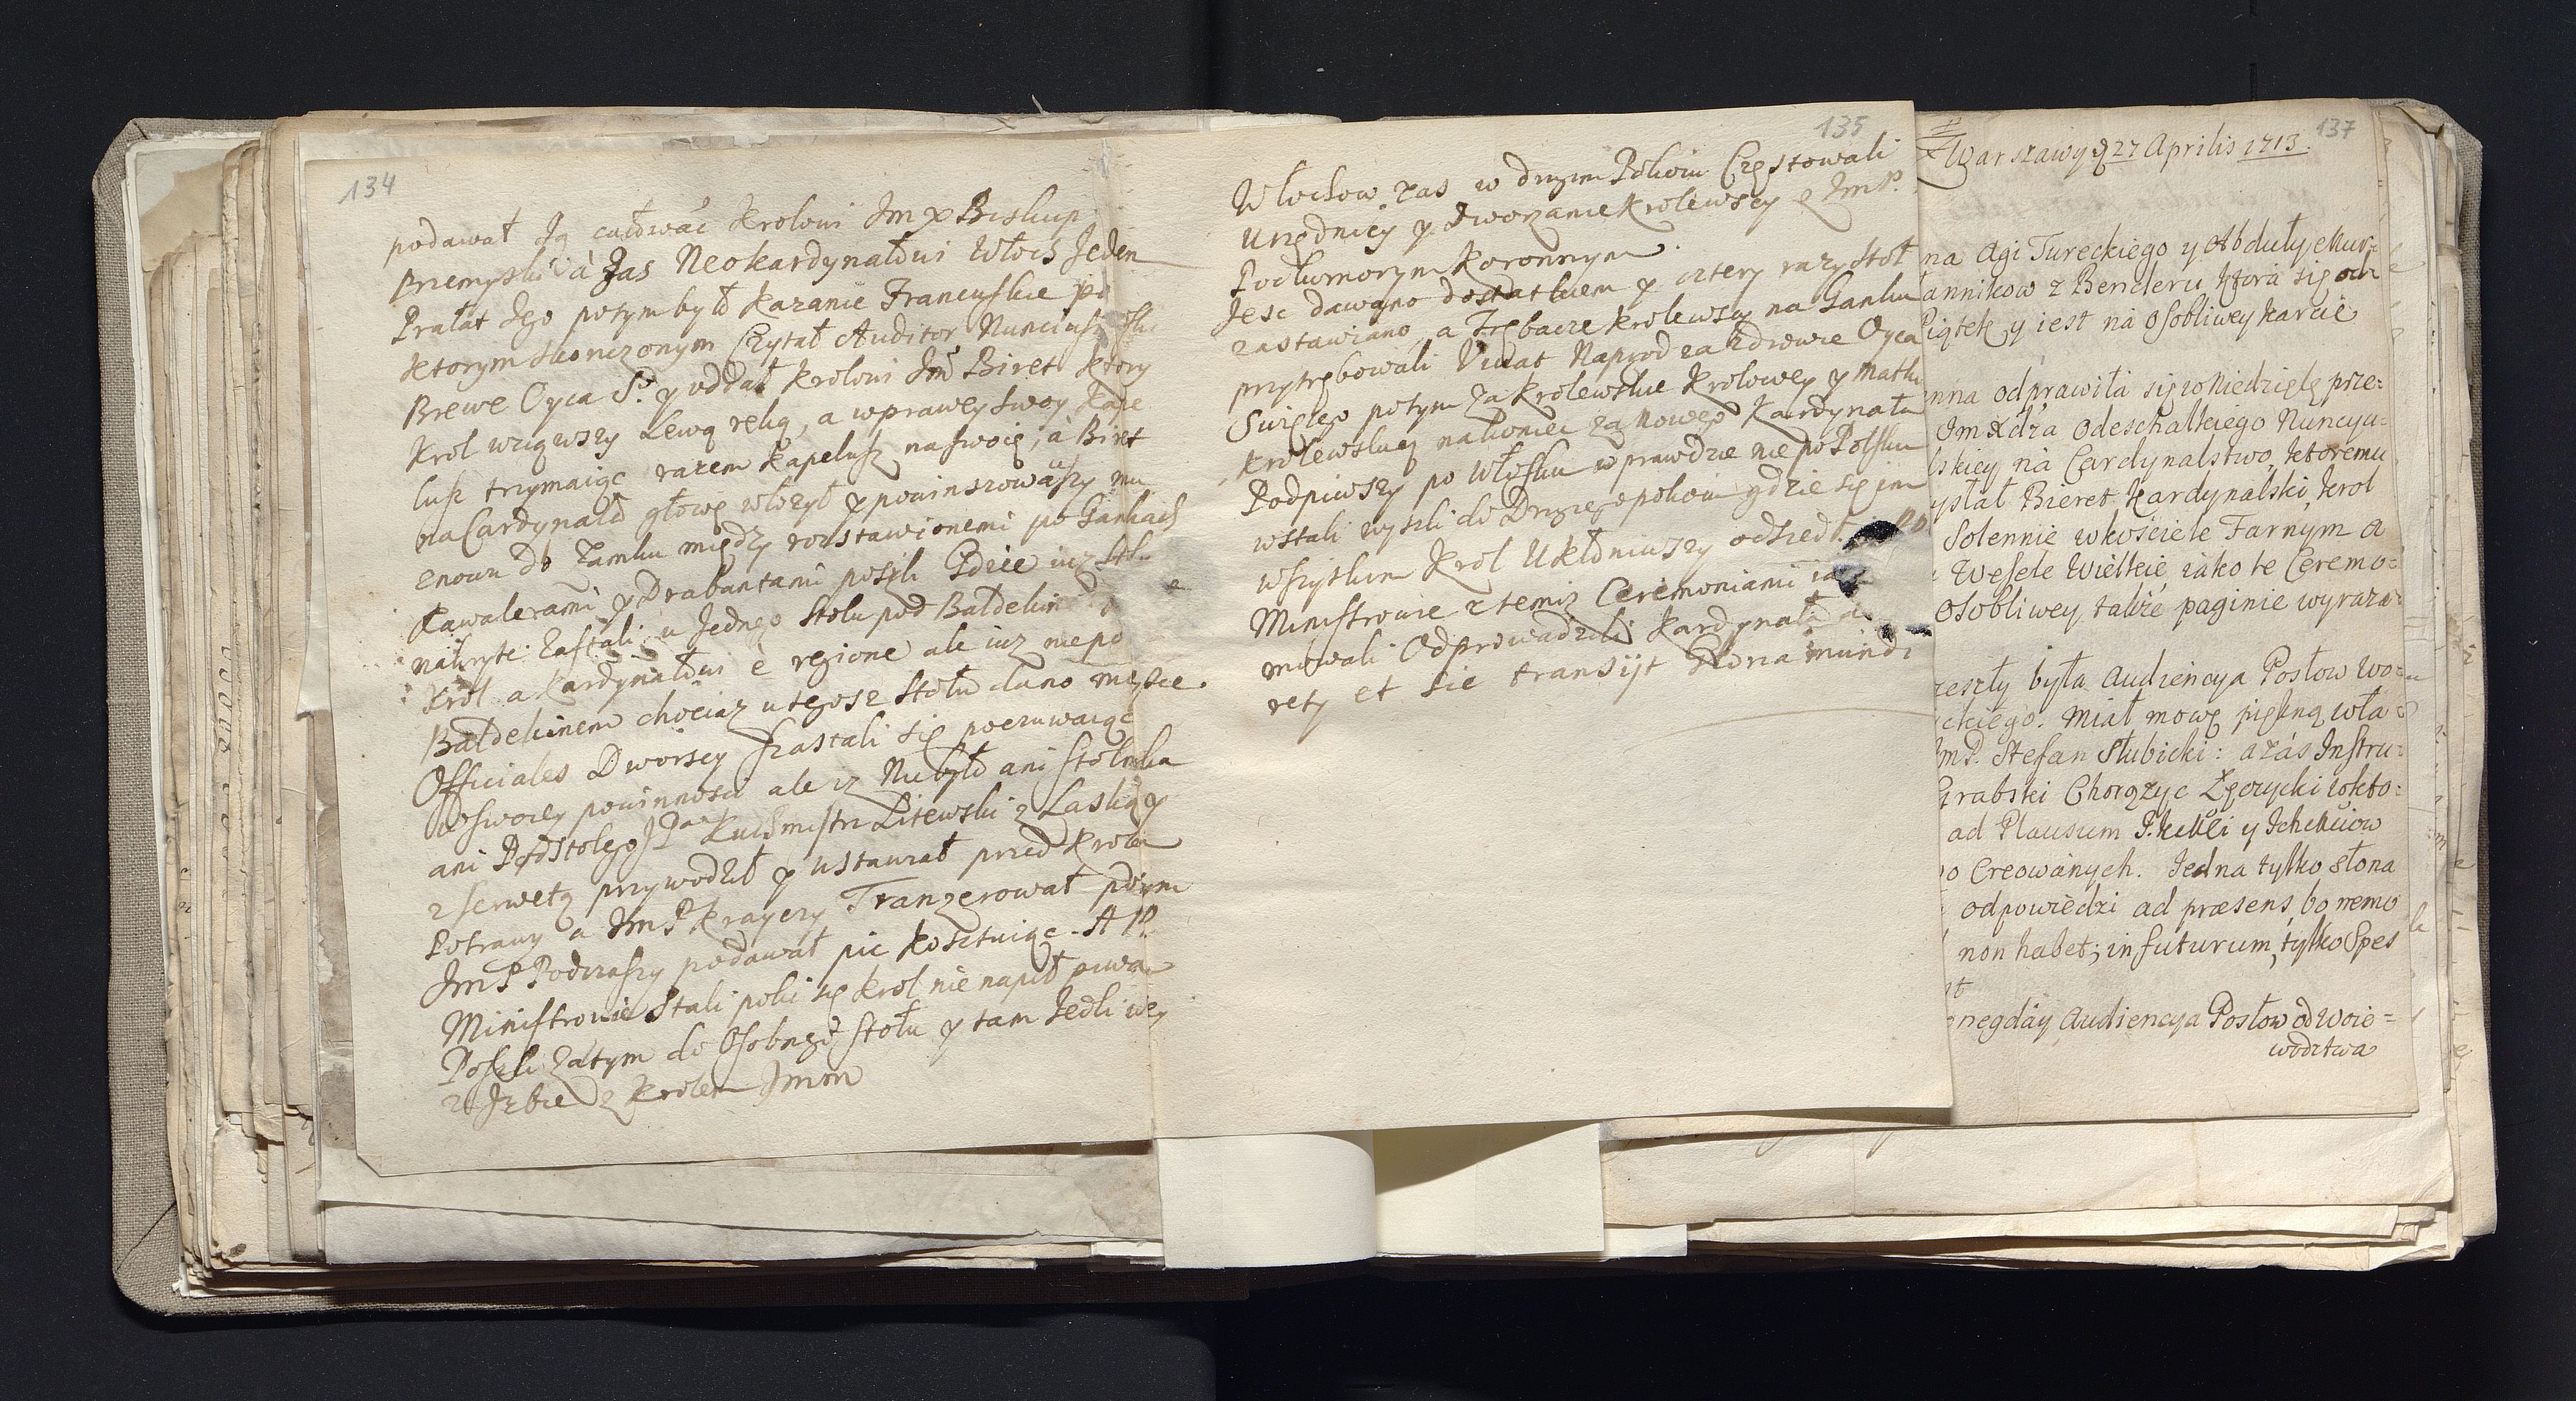 134
podawał Ją całowáć Krolowi Jm X Biskup
Przemyski à Zas Neokardynałowi Włoch Jeden
Prałat Jego potym było Kazanie Francuskie po
ktorym skonczonym Czytał Auditor Nunciuszowski
Brewe Oyca S. y oddał Krolowi Jm Biret ktory
Krol wziąwszy Lewą ręką, a w prawey swoy kape
lusz trzymaiąc razem kapelusz na swoię, à Biret
na Cardynała głowę włozył y powinszowawszy mu
znowu do Zamku między rozstawionemi po Gankach
Kawalerami y Drabantami poszli Gdzie iuz stoły
nakryte Zastali u Jednego Stołu pod Baldekinem
Krol a Kardynałowi è regione ale iuz nie pod
Baldekinem chociaz u tegosz Stołu dano mieysce.
Officiales Dworscy szastali się poczuwaiąc
w swoiey powinnosci ale iz Nie było ani Stolnika
ani Podstolego JPan Kuchmistrz Litewski z Laską y
z serwetą przywodził y ustawiał przed Krolem
Potrawy a Jm P Krayczy Tranzerował potym
Jm P Podczaszy podawał pic kosztuiąc. A PP.
Ministrowie Stali poki się Krol nie napił piwa
Poszli Zátym do Osobnego Stołu y tam Jedli wey
z Jzbie z Krolem Jmm
135
Włochow zas w drugim Pokoiu Częstowali
Urzędnicy y Dworzanie Krolewscy z JmP.
Podkomorzym Koronnym.
Jesc dawano dostatkiem y cztery razy Stoł
zastawiano, a Trębacze Krolewscy na Ganku
przytrębowali Vivat Naprzod za zdrowie Oyca
Swiętego potym za Krolewskie Krolowey y Matki
Krolewskiey nakoniec za Nowego Kardynała
Podpiwszy po Włosku wprawdzie nie po Polsku
wstali wyszli do Drugiego pokoiu gdzie się im
wszystkim Krol Ukłoniwszy odszedł. PP
Ministrowie z temiz Ceremoniami
mowali Odprowadzili Kardynała do
rety et sic transijt Gloria mundi
137
Warszawy d 27 Aprilis 1713.
na Agi Tureckiego y Abduły Mur=
annikow z Benderu, ktora się od
Piątek y iest ná osobliwey karcie
nna odprawiła się w Niedzielę prze=
Jm Xdza Odeschalkiego Nuncyu=
lskiey ná Cardynalstwo, ktoremu
ysłał Bieret Kardynalski, krol
Solennie w kościele Farnym a
Wesele Wielkie, iako te Ceremo=
osobliwey także paginie wyraza=
zeszły była Audiencya Posłow Wo=
ckiego. Miał mowę piękną wła=
JmP. Stefan Słubicki: a záś Instru=
Grabski Chorązyc Łęczycki w kto=
ad Plausum P.
o Creowanych. Jedna tylko słona
odpowiedzi ad præsens, bo nemo
non habet; in futurum, tylko Spes
t
negdáy Audiencya Posłow od Woie=
wodztwa